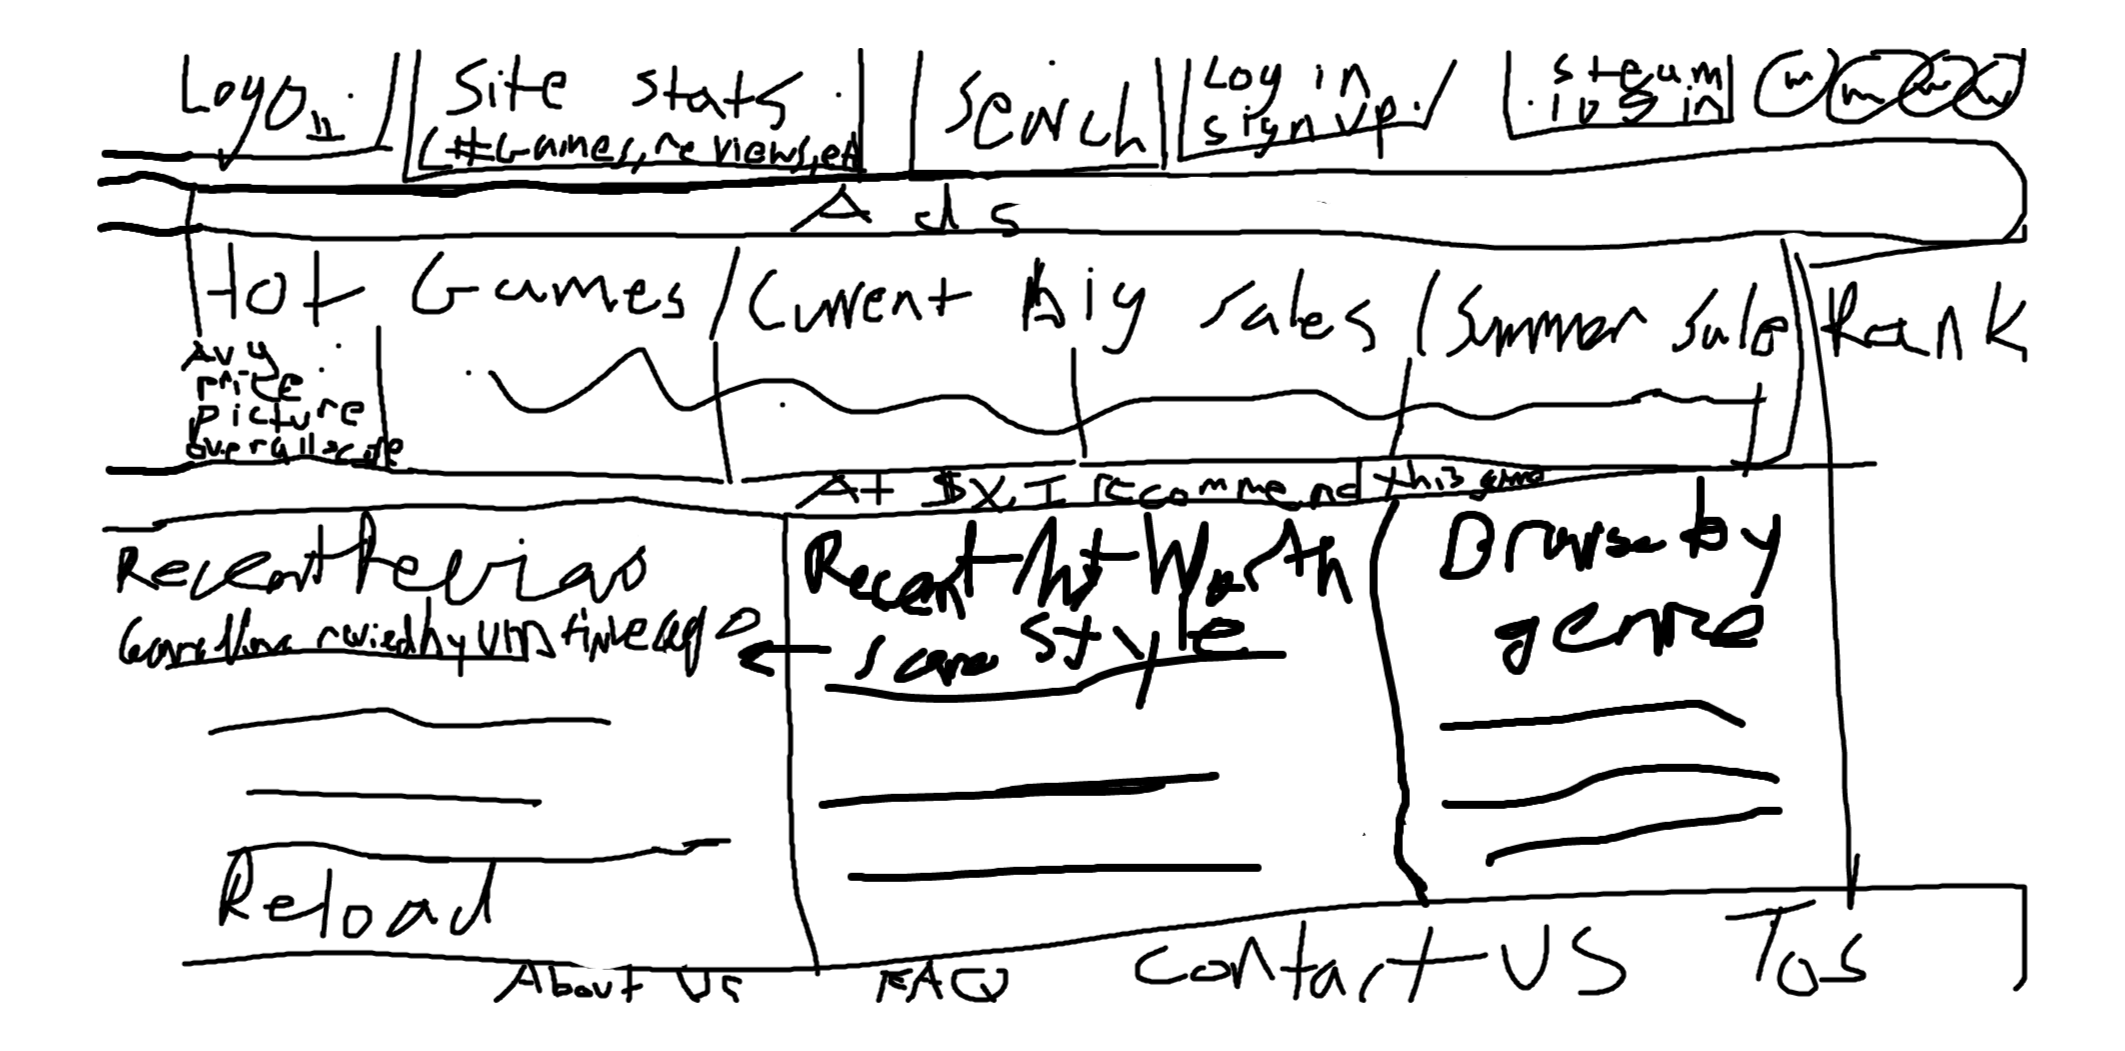 Logo
Site stats
(#Games, reviews, etc
Search
Log in
sign up
steam
log in
Ads
Hot Games
Current big sales
Summer sale
Rank
Avg
price
picture
overall score
At $X, I recommend this game
Recent Reviews
reviewed by
time ago
Recent Not Worth
same style
Browse by
genre
Reload
About Us
FAQ
Contact US
Tos